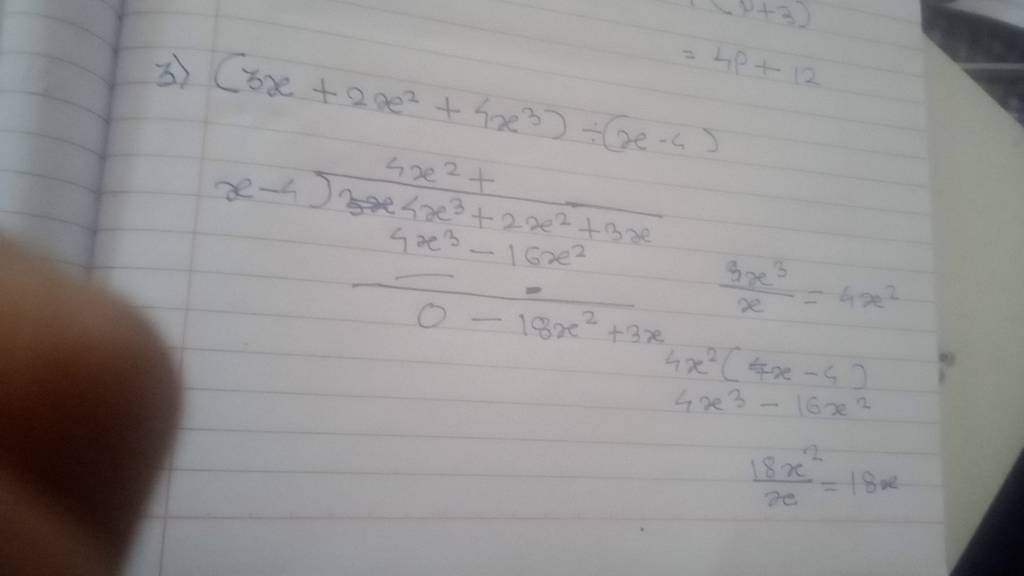 (p+3)
= 4p + 12
3) (3x + 2x² + 4x³) ÷ (x - 4)
4x² +
x - 4) 3x 4x³ + 2x² + 3x
4x³ - 16x²
0 - 18x² + 3x
3x³/x = 4x²
4x² (4x - 4)
4x³ - 16x²
18x²/x = 18x